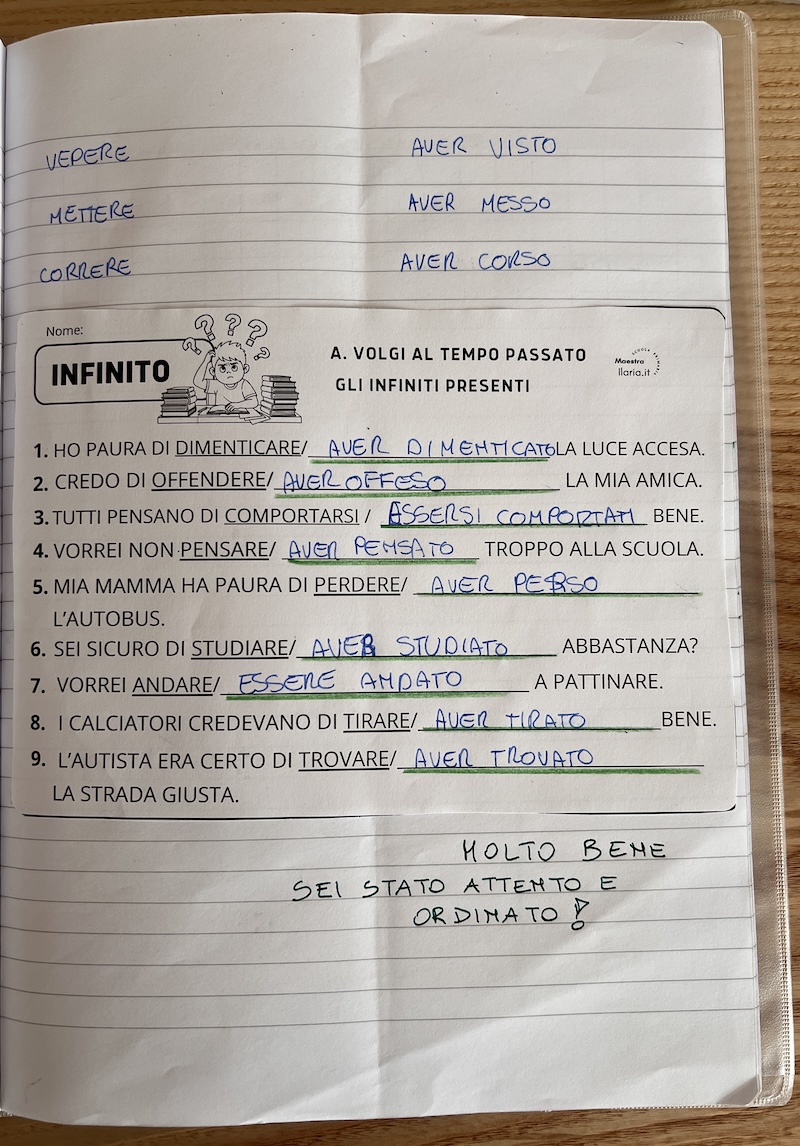 VEDERE AVER VISTO
METTERE AVER MESSO
CORRERE AVER CORSO
Nome:
INFINITO
A. VOLGI AL TEMPO PASSATO
GLI INFINITI PRESENTI
SCUOLA PRIMARIA
Maestra
Ilaria.it
1. HO PAURA DI DIMENTICARE/ AVER DIMENTICATO LA LUCE ACCESA.
2. CREDO DI OFFENDERE/ AVER OFFESO LA MIA AMICA.
3. TUTTI PENSANO DI COMPORTARSI / ESSERSI COMPORTATI BENE.
4. VORREI NON PENSARE/ AVER PENSATO TROPPO ALLA SCUOLA.
5. MIA MAMMA HA PAURA DI PERDERE/ AVER PERSO
L'AUTOBUS.
6. SEI SICURO DI STUDIARE/ AVER STUDIATO ABBASTANZA?
7. VORREI ANDARE/ ESSERE ANDATO A PATTINARE.
8. I CALCIATORI CREDEVANO DI TIRARE/ AVER TIRATO BENE.
9. L'AUTISTA ERA CERTO DI TROVARE/ AVER TROVATO
LA STRADA GIUSTA.
MOLTO BENE
SEI STATO ATTENTO E
ORDINATO!